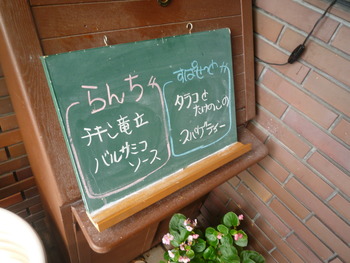 らんち
チキン竜立
バルサミコ
ソース
すぱせっと
タラコと
たけのこの
スパゲティー